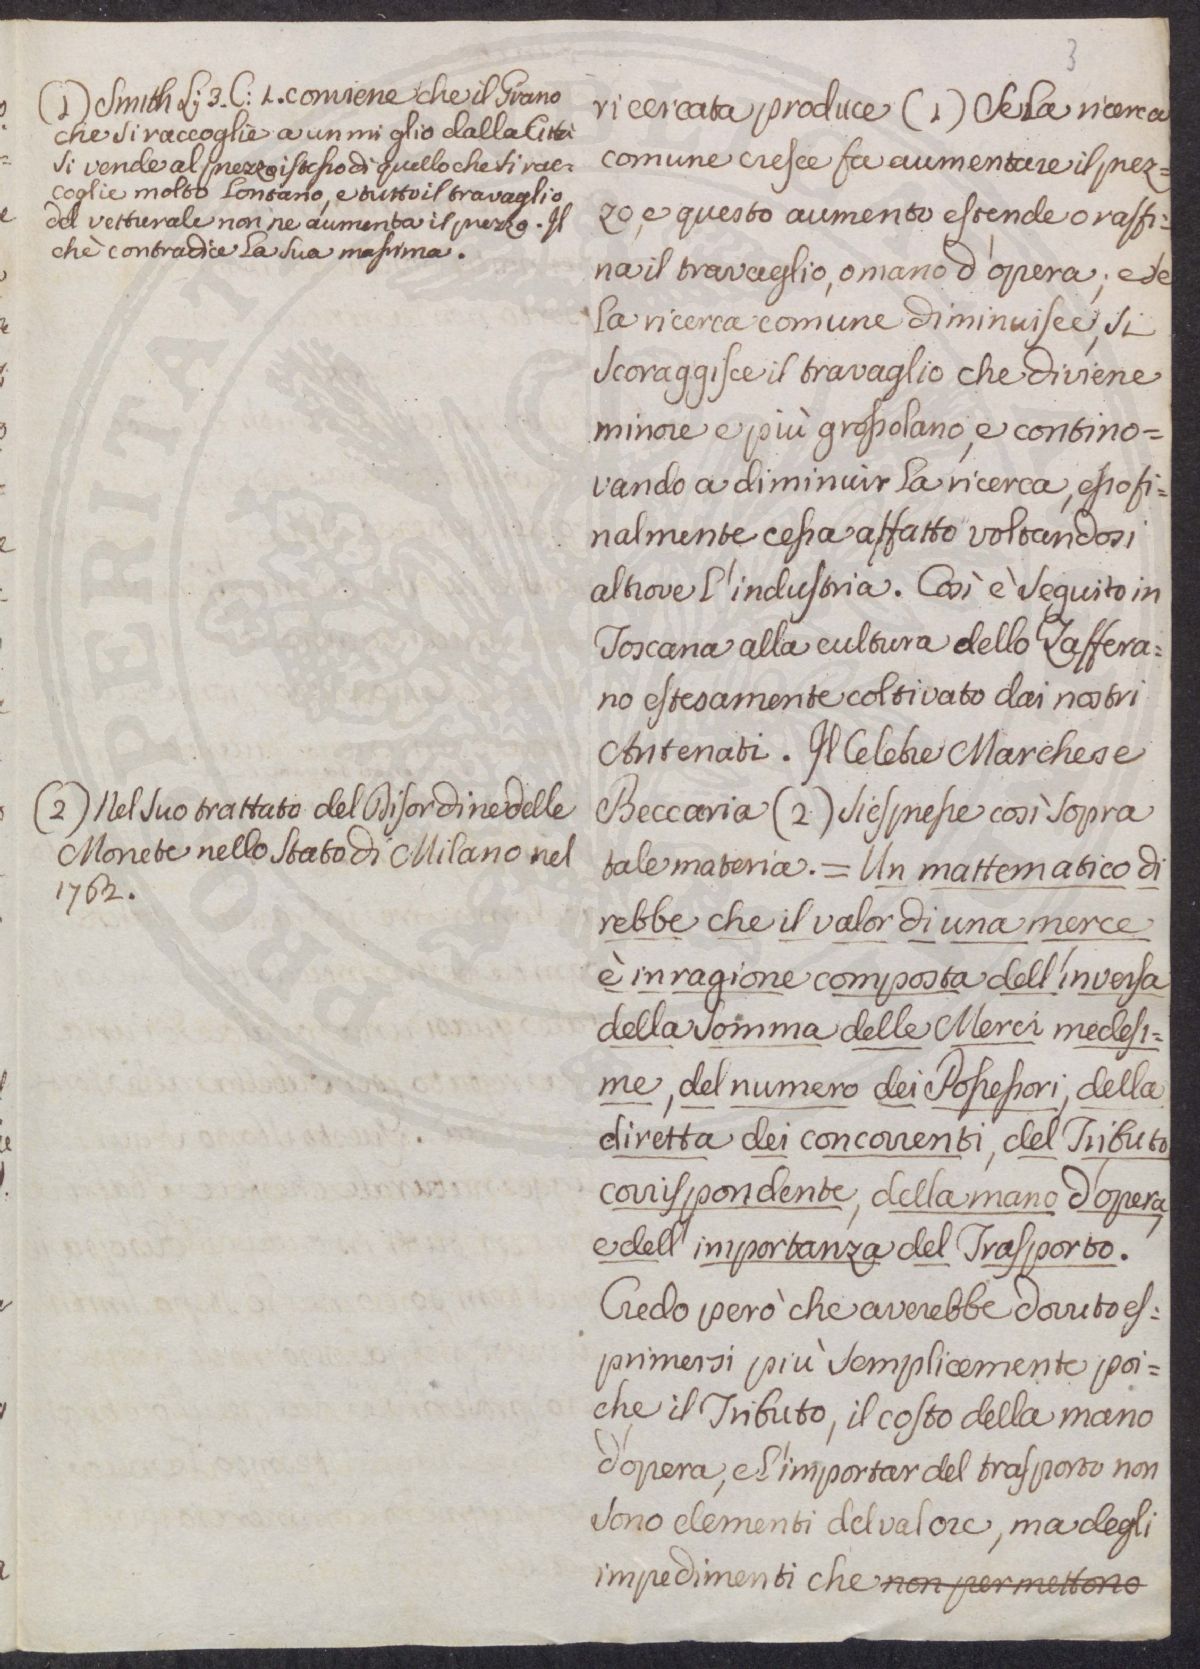 3
(1) Smith Lj 3. C: 1. conviene che il Grano
che si raccoglie a un miglio dalla Città
si vende al prezzo istesso di quello che si rac=
coglie molto lontano, e tutto il travaglio
del vetturale non ne aumenta il prezzo. Il
chè contradice la sua massima.
(2) Nel suo trattato del Disordine delle
Monete nello Stato di Milano nel
1762.
ricercata produce (1) Se la ricerca
comune cresce fa aumentare il prez=
zo, e questo aumento estende o raffi=
na il travaglio, o mano d'opera; e se
la ricerca comune diminuisce, si
scoraggisce il travaglio che diviene
minore e più grossolano, e contino=
vando a diminuir la ricerca, esso fi=
nalmente cessa affatto voltandosi
altrove l'industria. Così è seguito in
Toscana alla cultura dello Zaffera=
no estesamente coltivato dai nostri
Antenati. Il Celebre Marchese
Beccaria (2) si espresse così sopra
tale materia. = Un mattematico di
rebbe che il valor di una merce
è in ragione composta dell'inversa
della somma delle Merci medesi=
me, del numero dei Possessori, della
diretta dei concorrenti, del Tributo
corrispondente, della mano d'opera,
e dell'importanza del Trasporto.
Credo però che averebbe dovuto es=
primersi più semplicemente poi=
chè il Tributo, il costo della mano
d'opera, e l'importar del trasporto non
sono elementi del valore, ma degli
impedimenti che non permettono
PROPERITAT